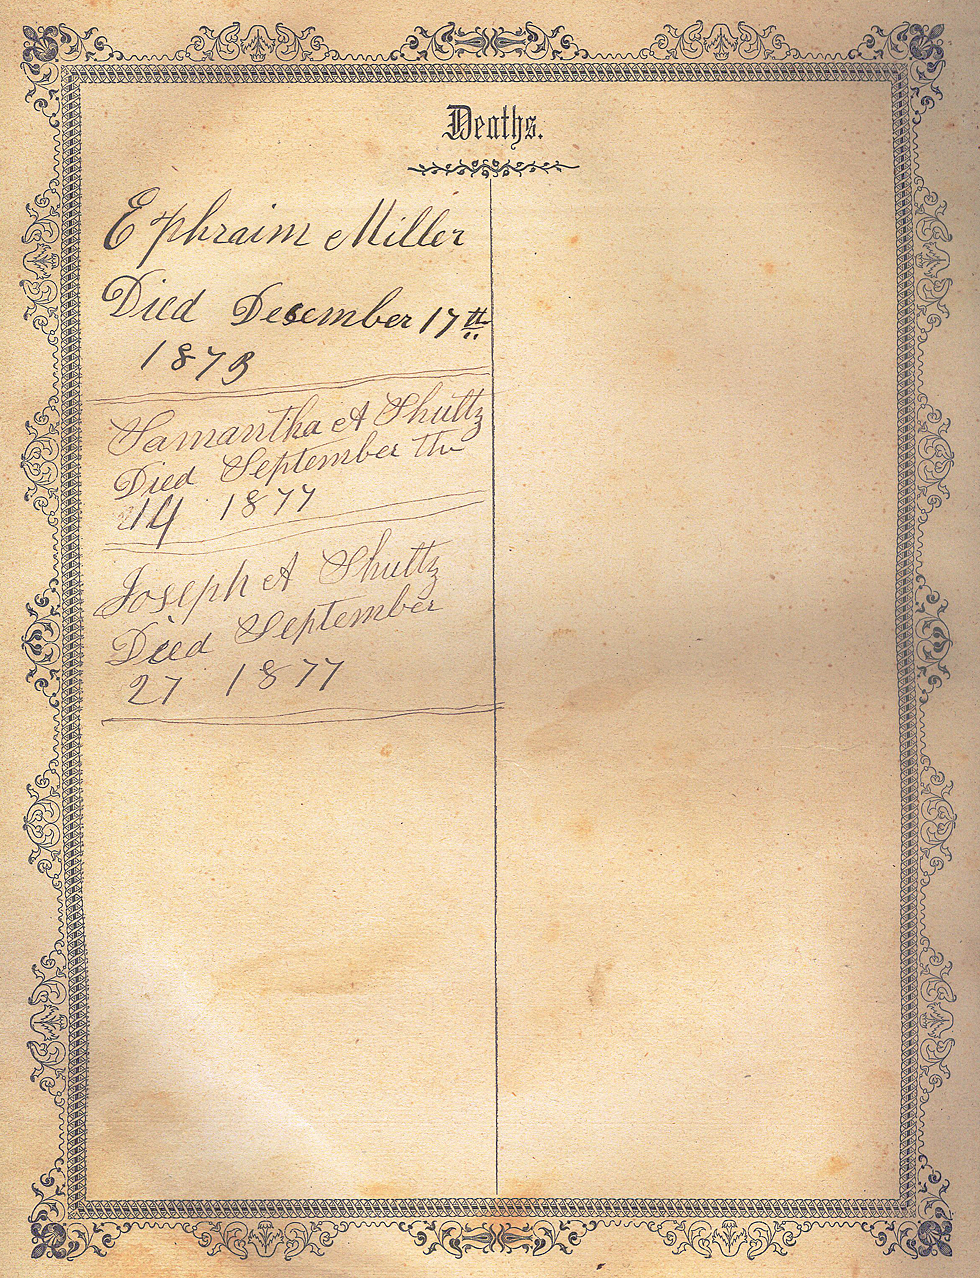 Deaths.
Ephraim Miller
Died December 17th
1873
Samantha A Shultz
Died September the
14 1877
Joseph A Shultz
Died September
27 1877